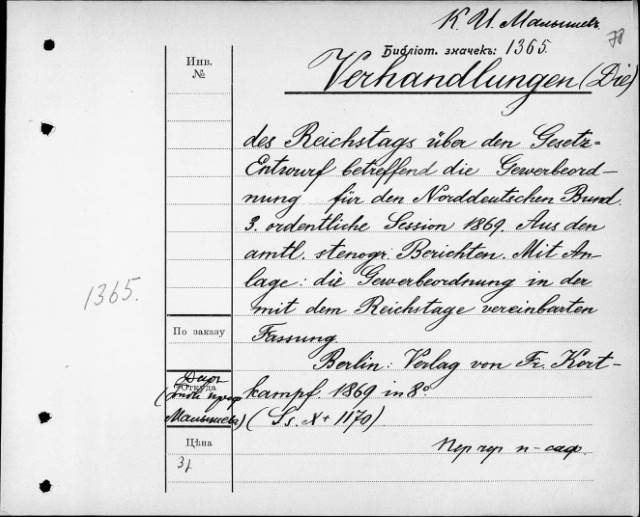 К. И. Малышевъ.
78
Библіот. значекъ: 1365.
Инв.
№
Verhandlungen (Die)
des Reichstags über den Gesetz-
Entwurf betreffend die Gewerbeord-
nung für den Norddeutschen Bund.
3. ordentliche Session 1869. Aus den
amtl. stenogr. Berichten. Mit An-
lage: die Gewerbeordnung in der
mit dem Reichstage vereinbarten
Fassung.
1365.
По заказу
Berlin: Verlag von Fr. Kort-
kampf. 1869 in 8°.
(Ss. X + 1170)
Откуда
Даръ
проф
Малышева)
Цѣна
3
Пер чер